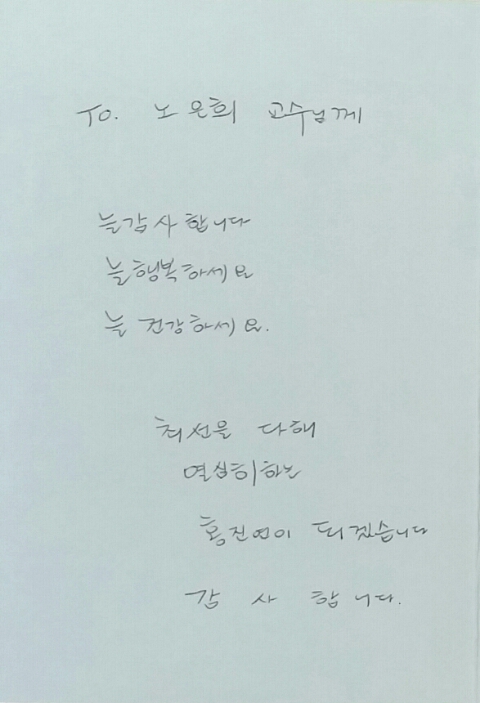 To. 노은희 교수님께
늘 감사합니다
늘 행복하세요
늘 건강하세요.
최선을 다해
열심히하는
홍진연이 되겠습니다
감사합니다.